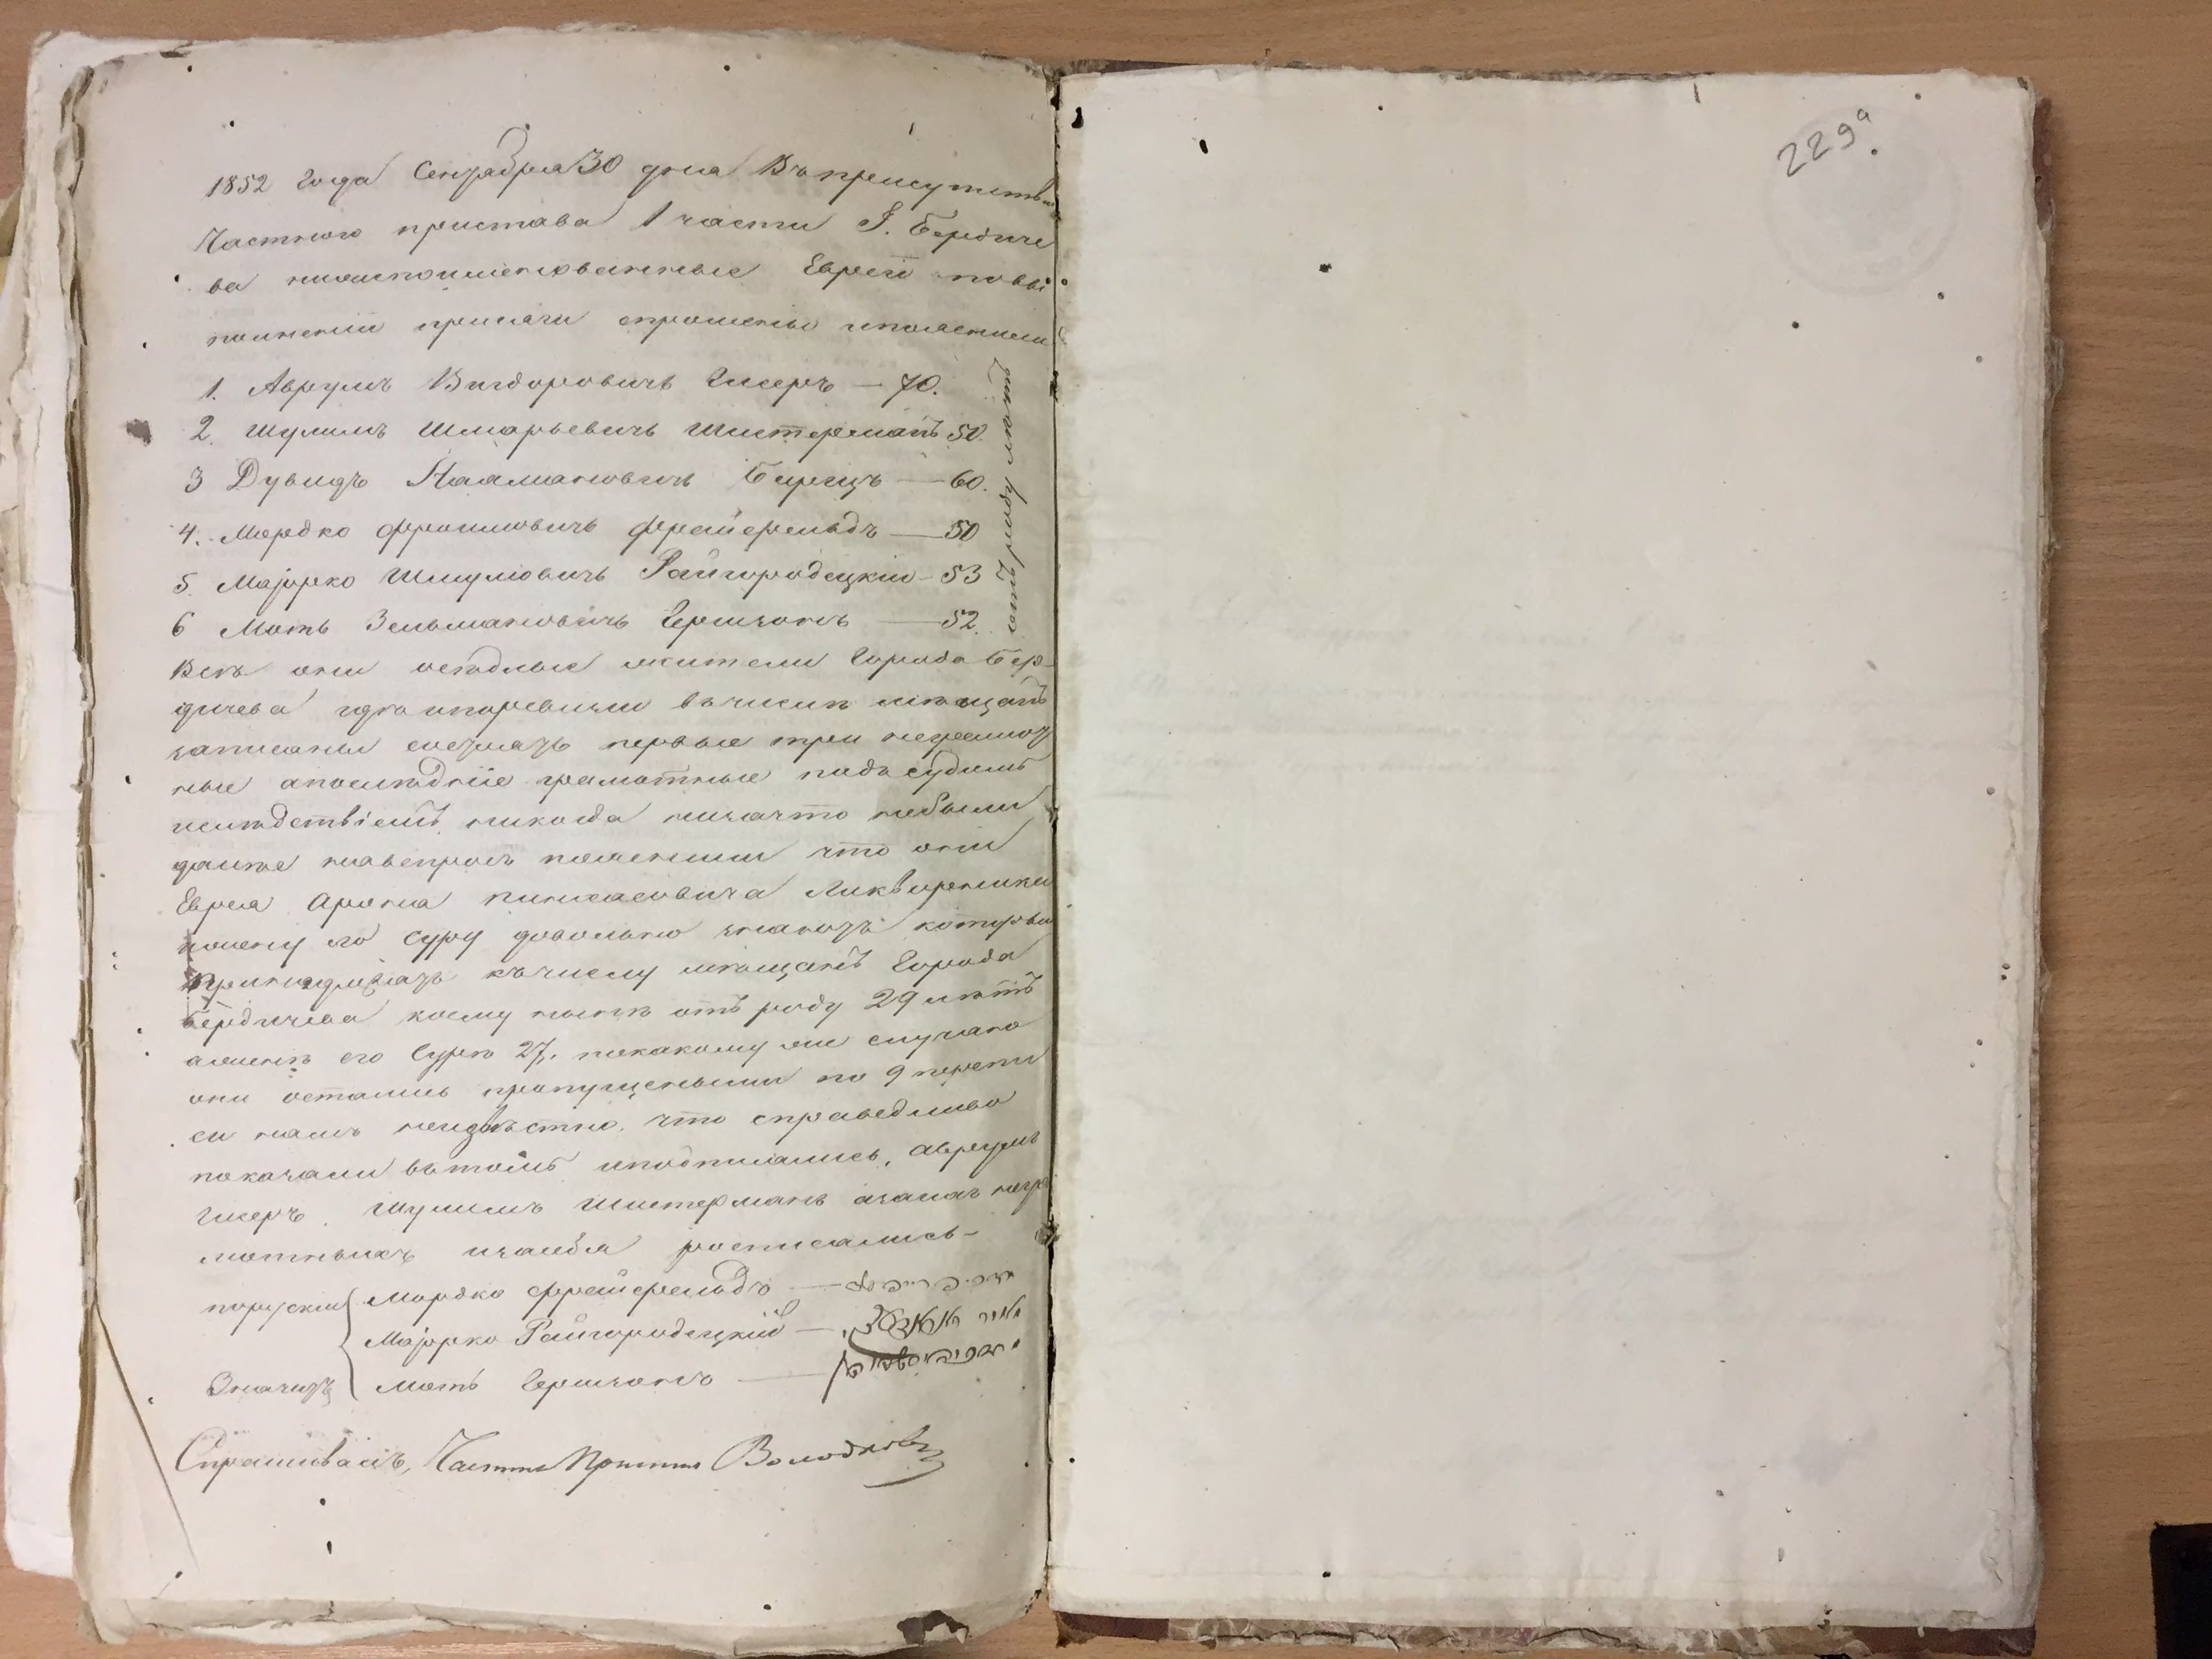 1852 года Сентября 30 дня Въ присутствіи
Частного пристава 1 части Г. Бердиче
ва нижепоименованные Евреи повы
полненіи присяги спрошены ипояснили
1. Аврумъ Вигдоровичъ Гисеръ — 70.
2. Шулимъ Шмарьевичъ Шистерманъ 50.
3 Дувидъ Наамановичъ Барецъ — 60.
4. Мордко Фроимовичъ Фрайерфельдъ — 50
5. Маіорко Шмулёвичъ Райгородецкій — 53
6 Моть Зельмановичъ Гершзонъ — 52.
отъ роду лѣтъ
Всѣ они осѣдлые жители Города Бер-
дичева гдѣ и поревизіи въчислѣ мѣщанъ
записаны первые три неграмот
ные апослѣдніе грамотные подъ судомъ
ислѣдствіемъ никогда низачто небыли
далѣе навспросъ пояснили что они
Еврея Арона Пинхасовича
ижену его Суру довольно знаютъ которые
принадлежатъ къчислу мѣщанъ Города
Бердичева коему нынѣ отъ роду 29 лѣтъ
аженѣ его Сурѣ 27, покакому же случаю
они остались пропущеными по 9 перепи
си намъ неизвѣстно, что справедливо
показали вътомъ иподписались, Аврумъ
Гисеръ, Шулимъ Шистерманъ азанихъ негра
мотныхъ изасебя росписались —
порусски Мордко Фрайерфельдъ —
Маіорко Райгородецкій —
Значитъ Моть Гершзонъ —
Спрашивалъ, Частный Приставъ
229а